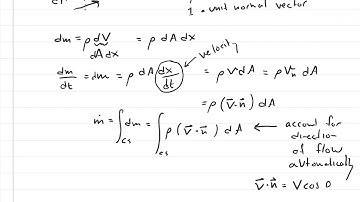 1 - unit normal vector
dm = ρ dV = ρ dA dx
dA dx
velocity
dm/dt = dm = ρ dA dx/dt = ρ V dA = ρ Vn dA
= ρ (V⃗·n⃗) dA
ṁ = ∫cs dm = ∫cs ρ (V⃗·n⃗) dA ← account for
direction
of flow
automatically
V⃗·n⃗ = V cos θ